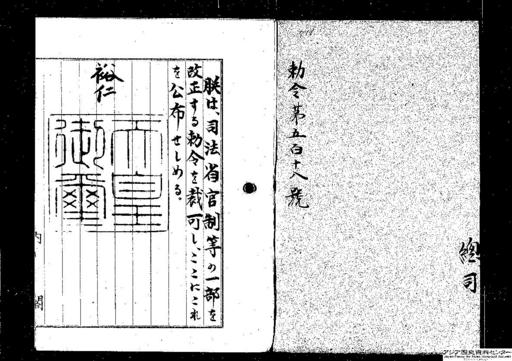 勅令第五百十八號
總
司
朕は、司法省官制等の一部を
改正する勅令を裁可し、ここにこれ
を公布せしめる。
裕仁
天皇
御璽
内 閣
アジア歴史資料センター